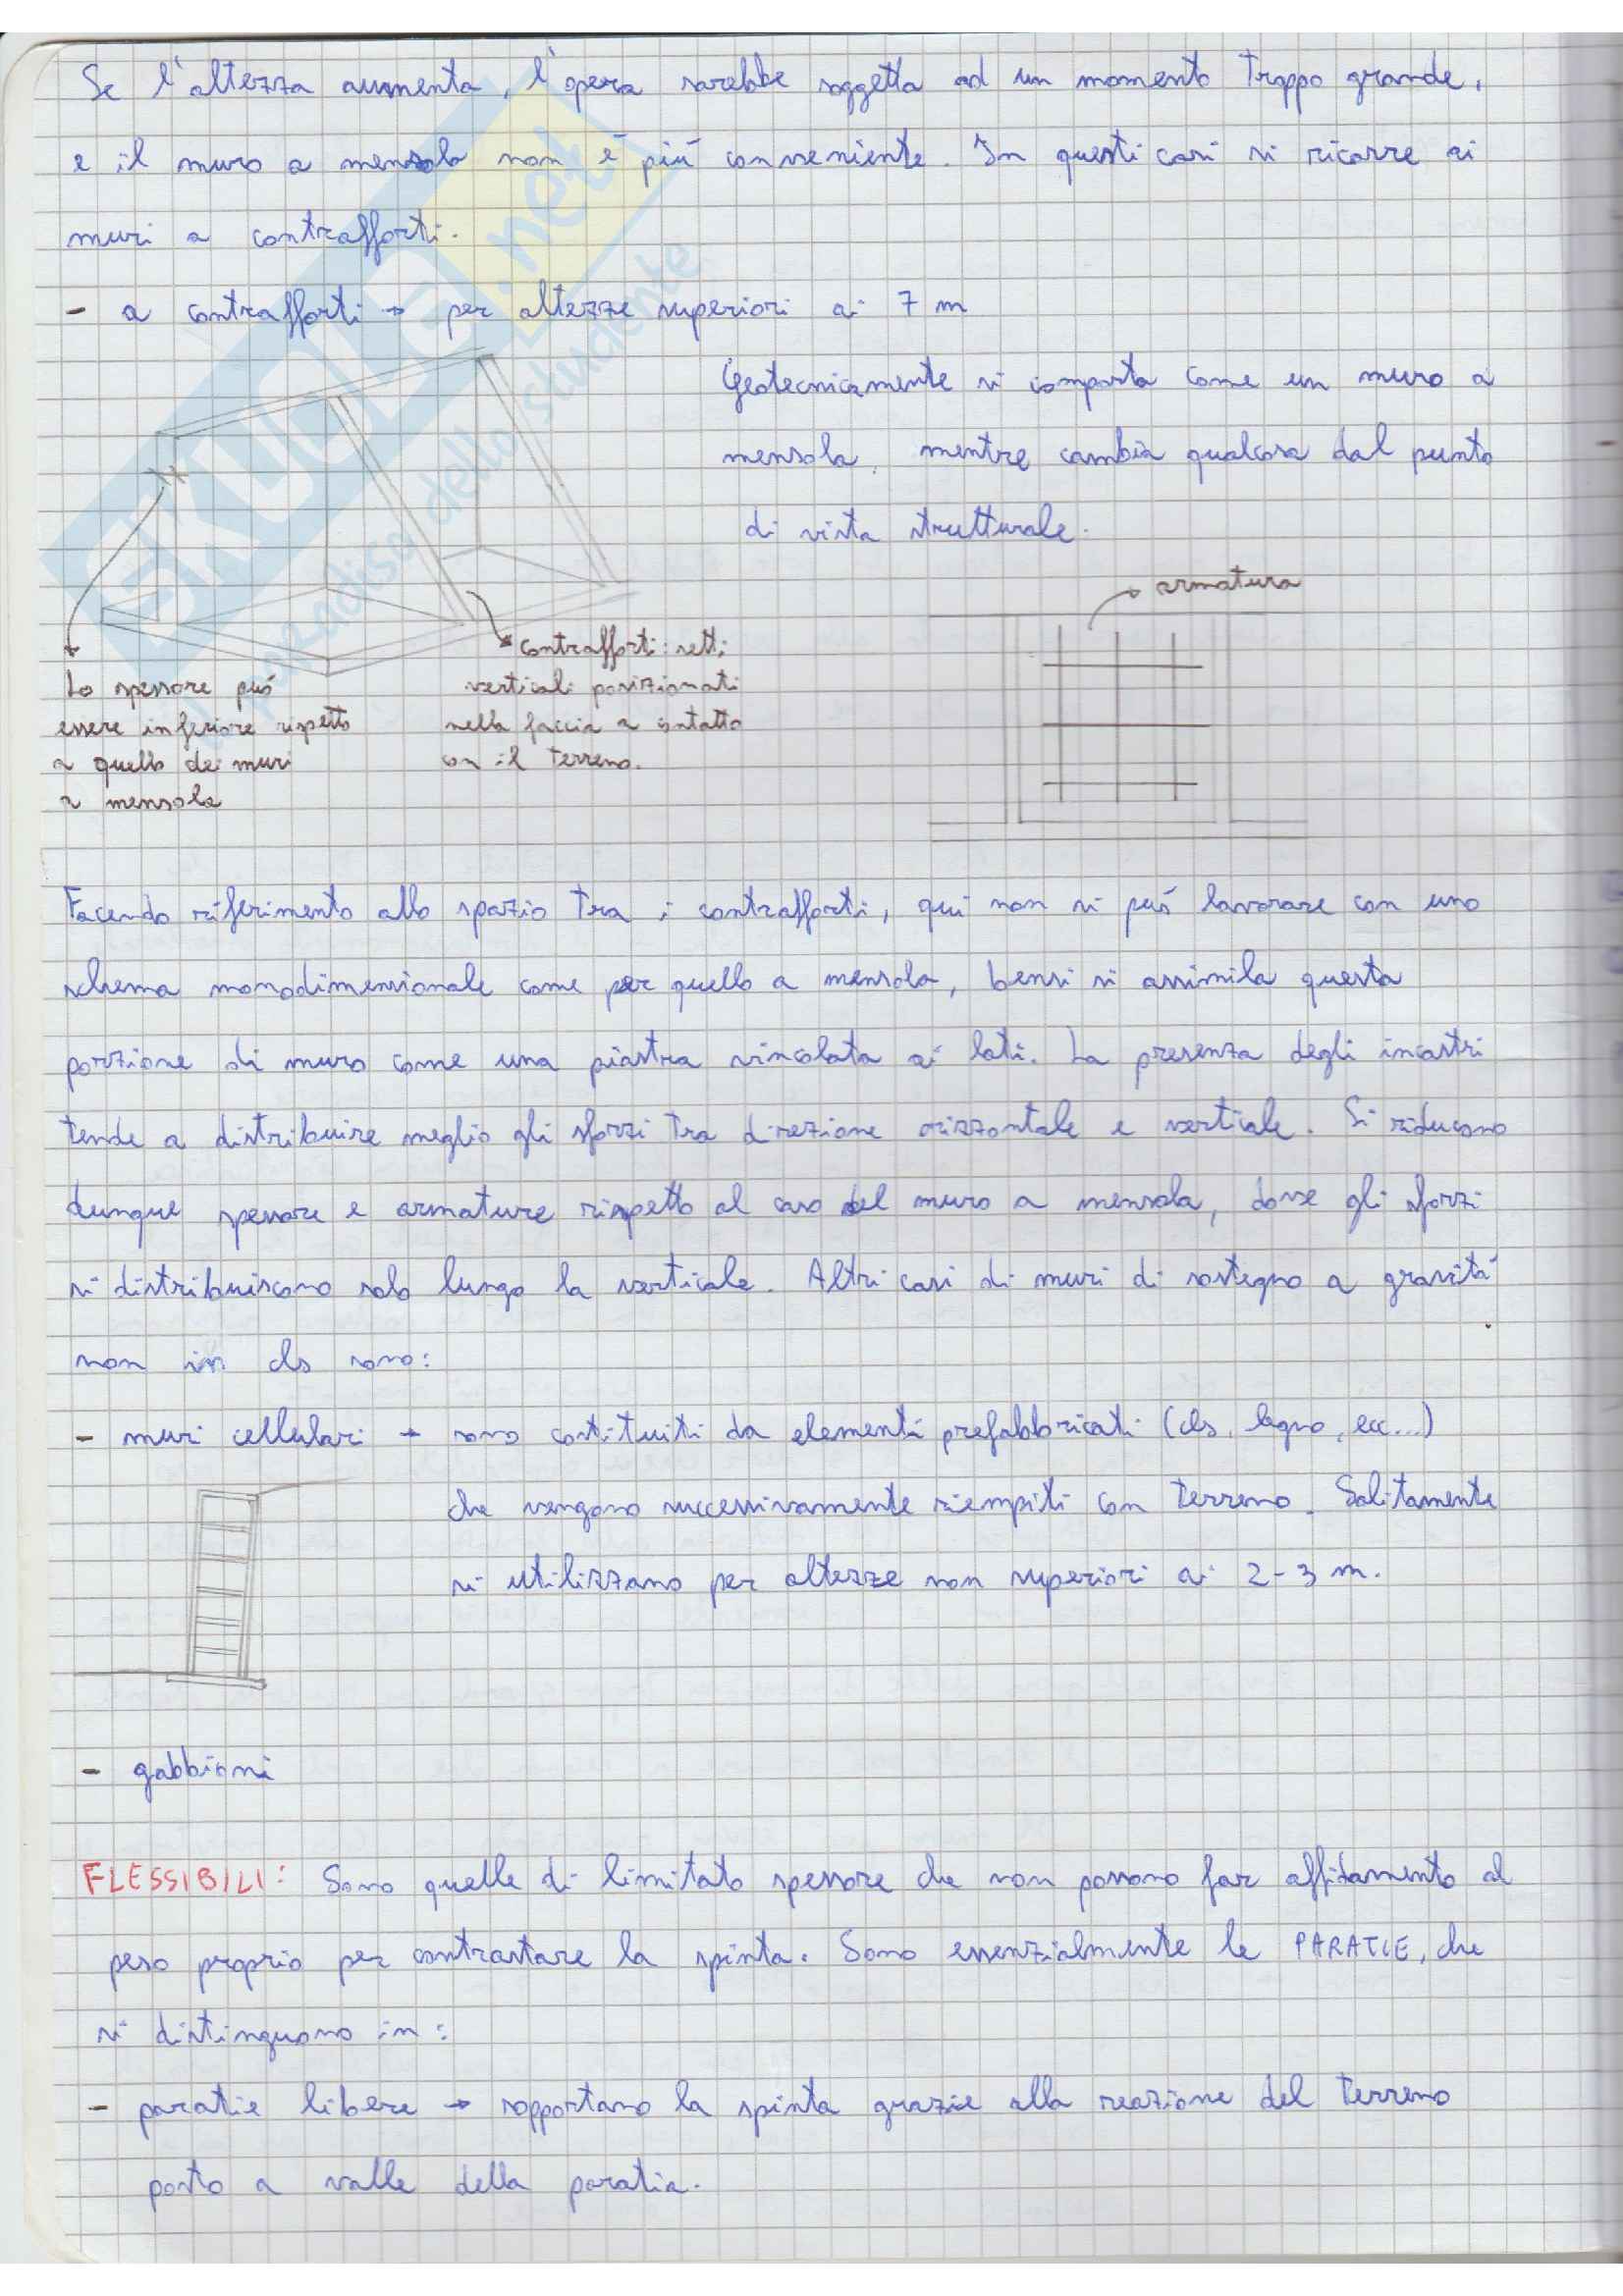 Se l'altezza aumenta, l'opera sarebbe soggetta ad un momento troppo grande,
e il muro a mensola non è più conveniente. In questi casi si ricorre ai
muri a contrafforti.
- a contrafforti → per altezze superiori ai 7 m
Geotecnicamente si comporta come un muro a
mensola, mentre cambia qualcosa dal punto
di vista strutturale.
armatura
Lo spessore può
essere inferiore rispetto
a quello dei muri
a mensola
contrafforti: setti
verticali posizionati
nella faccia a contatto
con il terreno.
Facendo riferimento allo spazio tra i contrafforti, qui non si può lavorare con uno
schema monodimensionale come per quello a mensola, bensì si assimila questa
porzione di muro come una piastra vincolata ai lati. La presenza degli incastri
tende a distribuire meglio gli sforzi tra direzione orizzontale e verticale. Si riducono
dunque spessore e armature rispetto al caso del muro a mensola, dove gli sforzi
si distribuiscono solo lungo la verticale. Altri casi di muri di sostegno a gravità
non in cls sono:
- muri cellulari → sono costituiti da elementi prefabbricati (cls, legno, ecc...)
che vengono successivamente riempiti con terreno. Solitamente
si utilizzano per altezze non superiori ai 2-3 m.
- gabbioni
FLESSIBILI: Sono quelle di limitato spessore che non possono far affidamento al
peso proprio per contrastare la spinta. Sono essenzialmente le PARATIE, che
si distinguono in:
- paratie libere → sopportano la spinta grazie alla reazione del terreno
posto a valle della paratia.
SKUOLA.net
il paradiso dello studente